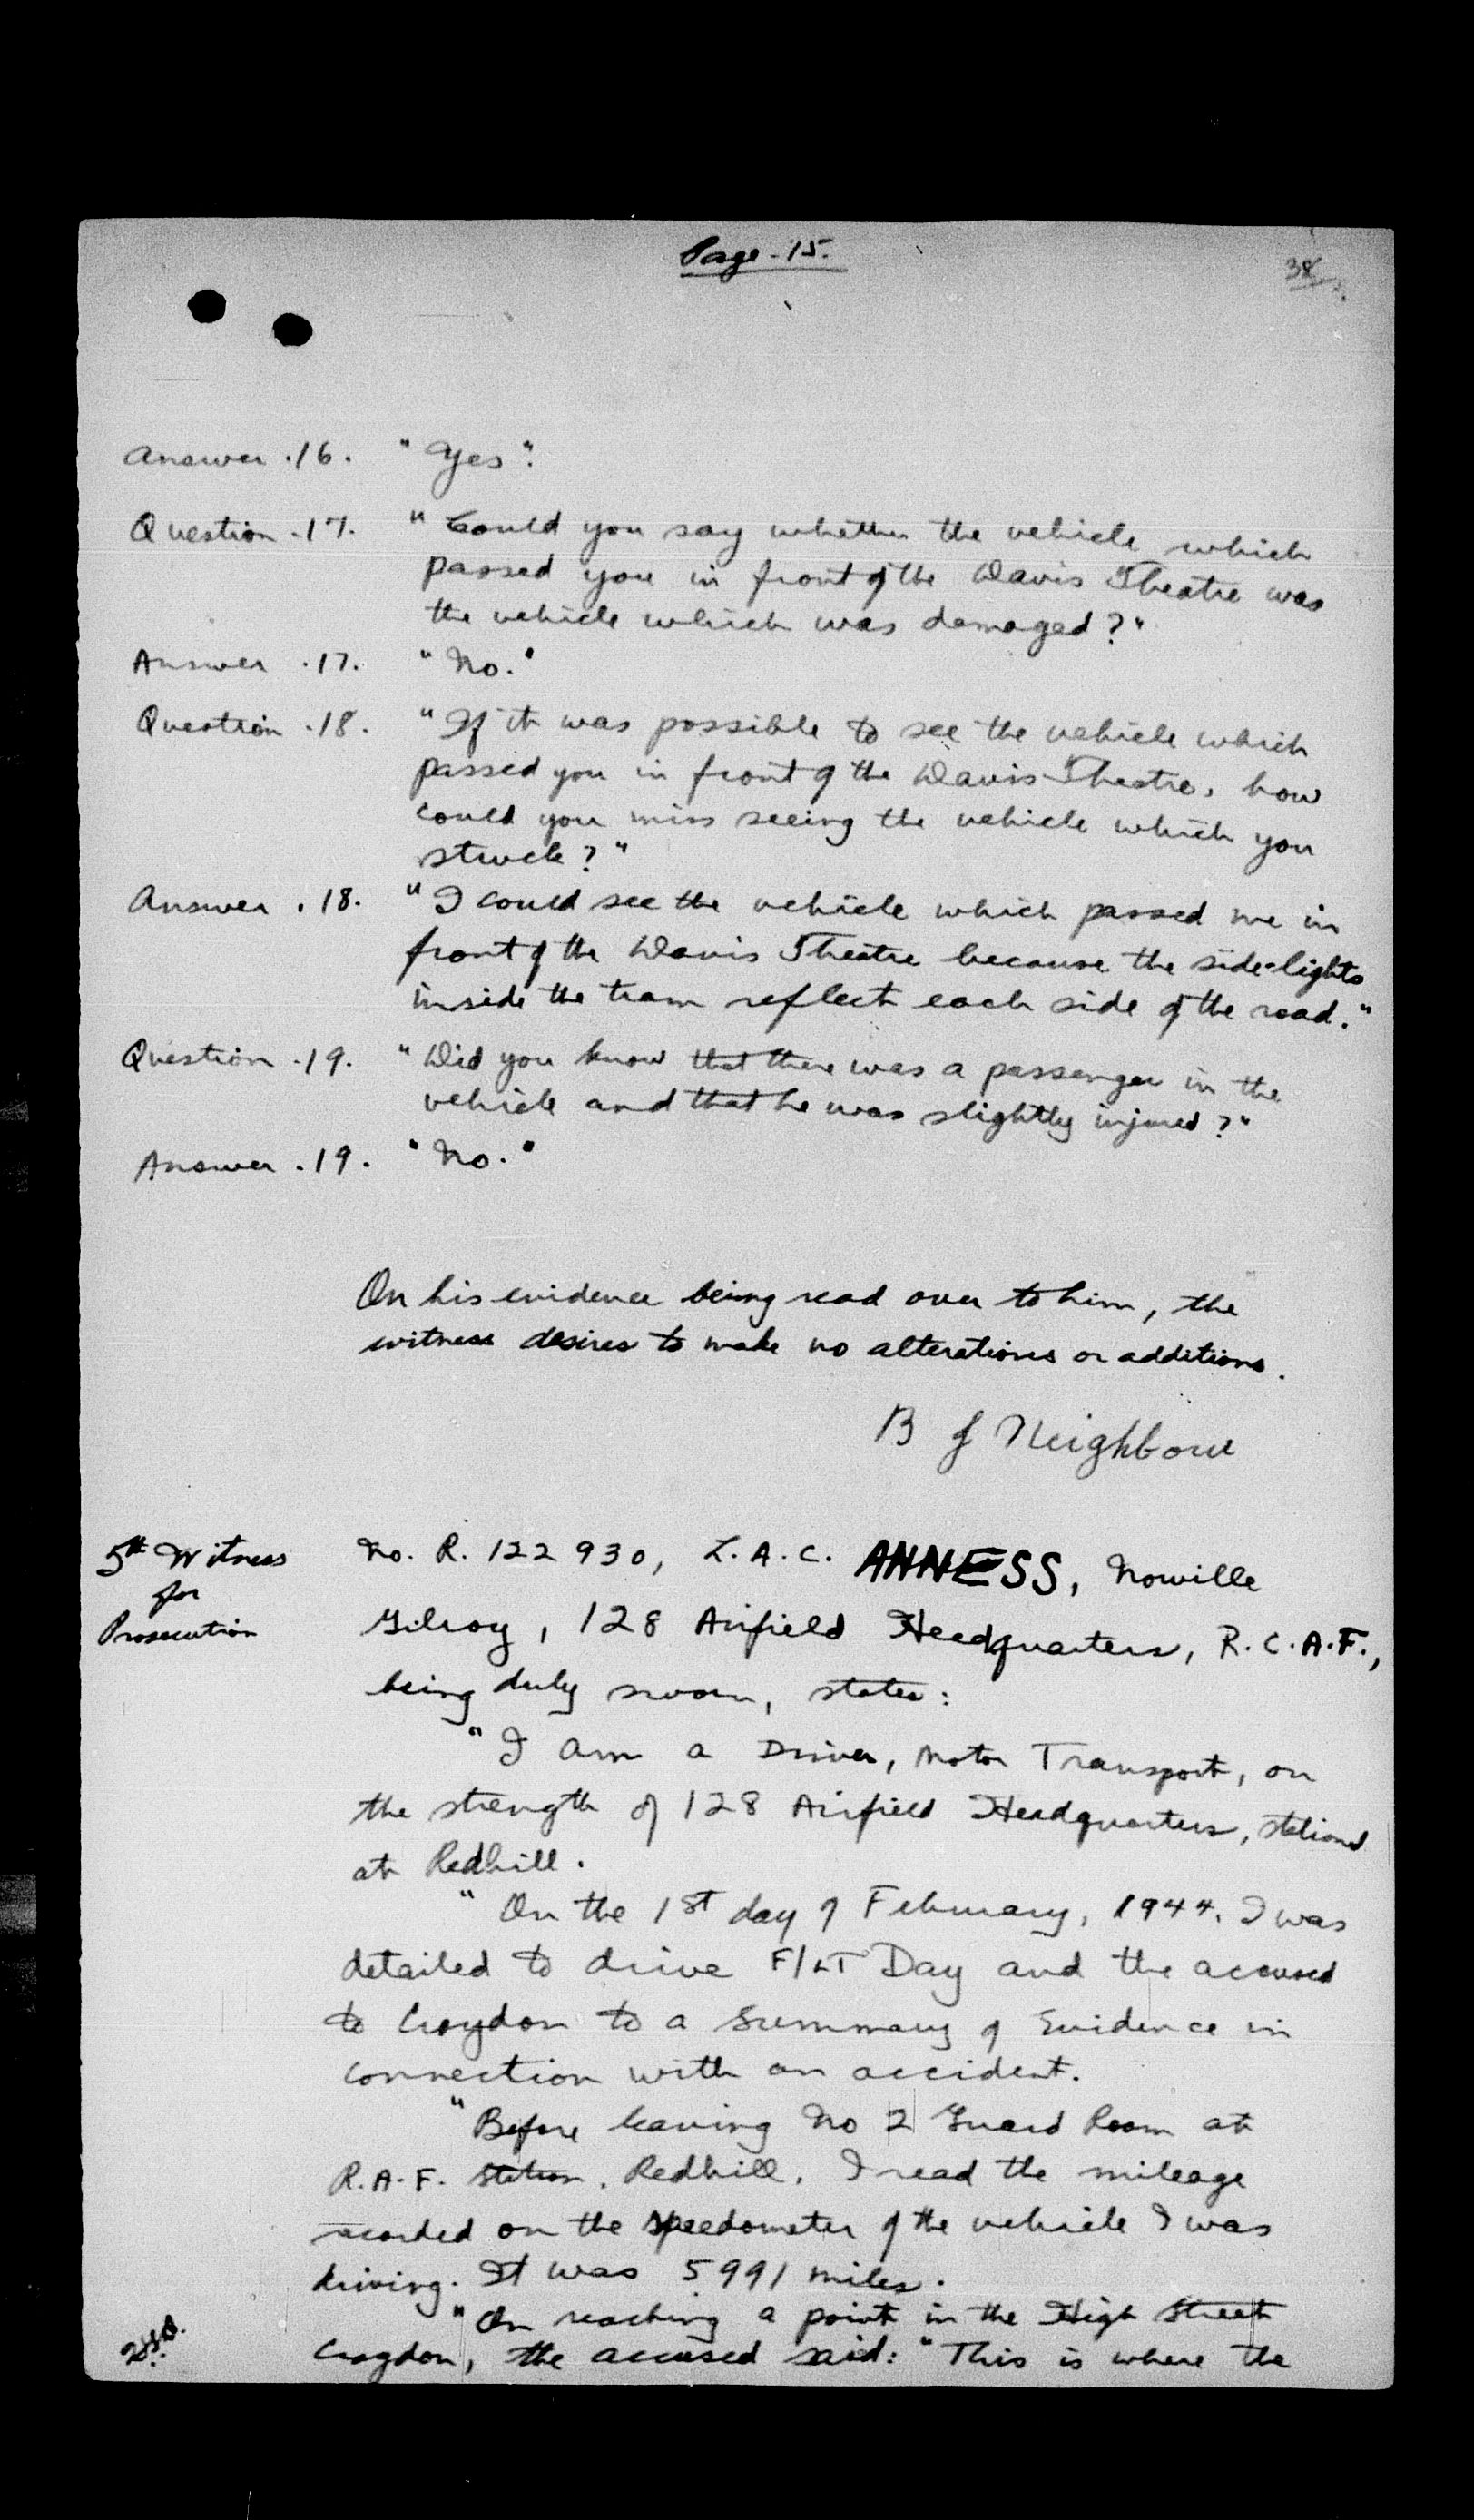 Page. 15.
38
Answer .16. "Yes".
Question .17. "Could you say whether the vehicle which
passed you in front of the Davis Theatre was
the vehicle which was damaged?"
Answer .17. "No."
Question .18. "If it was possible to see the vehicle which
passed you in front of the Davis Theatre, how
could you miss seeing the vehicle which you
struck?"
Answer .18. "I could see the vehicle which passed me in
front of the Davis Theatre because the side-lights
inside the tram reflect each side of the road."
Question .19. "Did you know that there was a passenger in the
vehicle and that he was slightly injured?"
Answer .19. "No."
On his evidence being read over to him, the
witness desires to make no alterations or additions.
B J Neighbour
5th Witness
for
Prosecution
No. R. 122930, L.A.C. ANNESS, Norville
Gilroy, 128 Airfield Headquarters, R.C.A.F.,
being duly sworn, states:
"I am a Driver, Motor Transport, on
the strength of 128 Airfield Headquarters, stationed
at Redhill.
"On the 1st day of February, 1944, I was
detailed to drive F/LT Day and the accused
to Croydon to a Summary of Evidence in
connection with an accident.
"Before leaving No 2 Guard Room at
R.A.F. Station, Redhill, I read the mileage
recorded on the speedometer of the vehicle I was
driving. It was 5991 miles.
"On reaching a point in the High Street
Croydon, the accused said: "This is where the